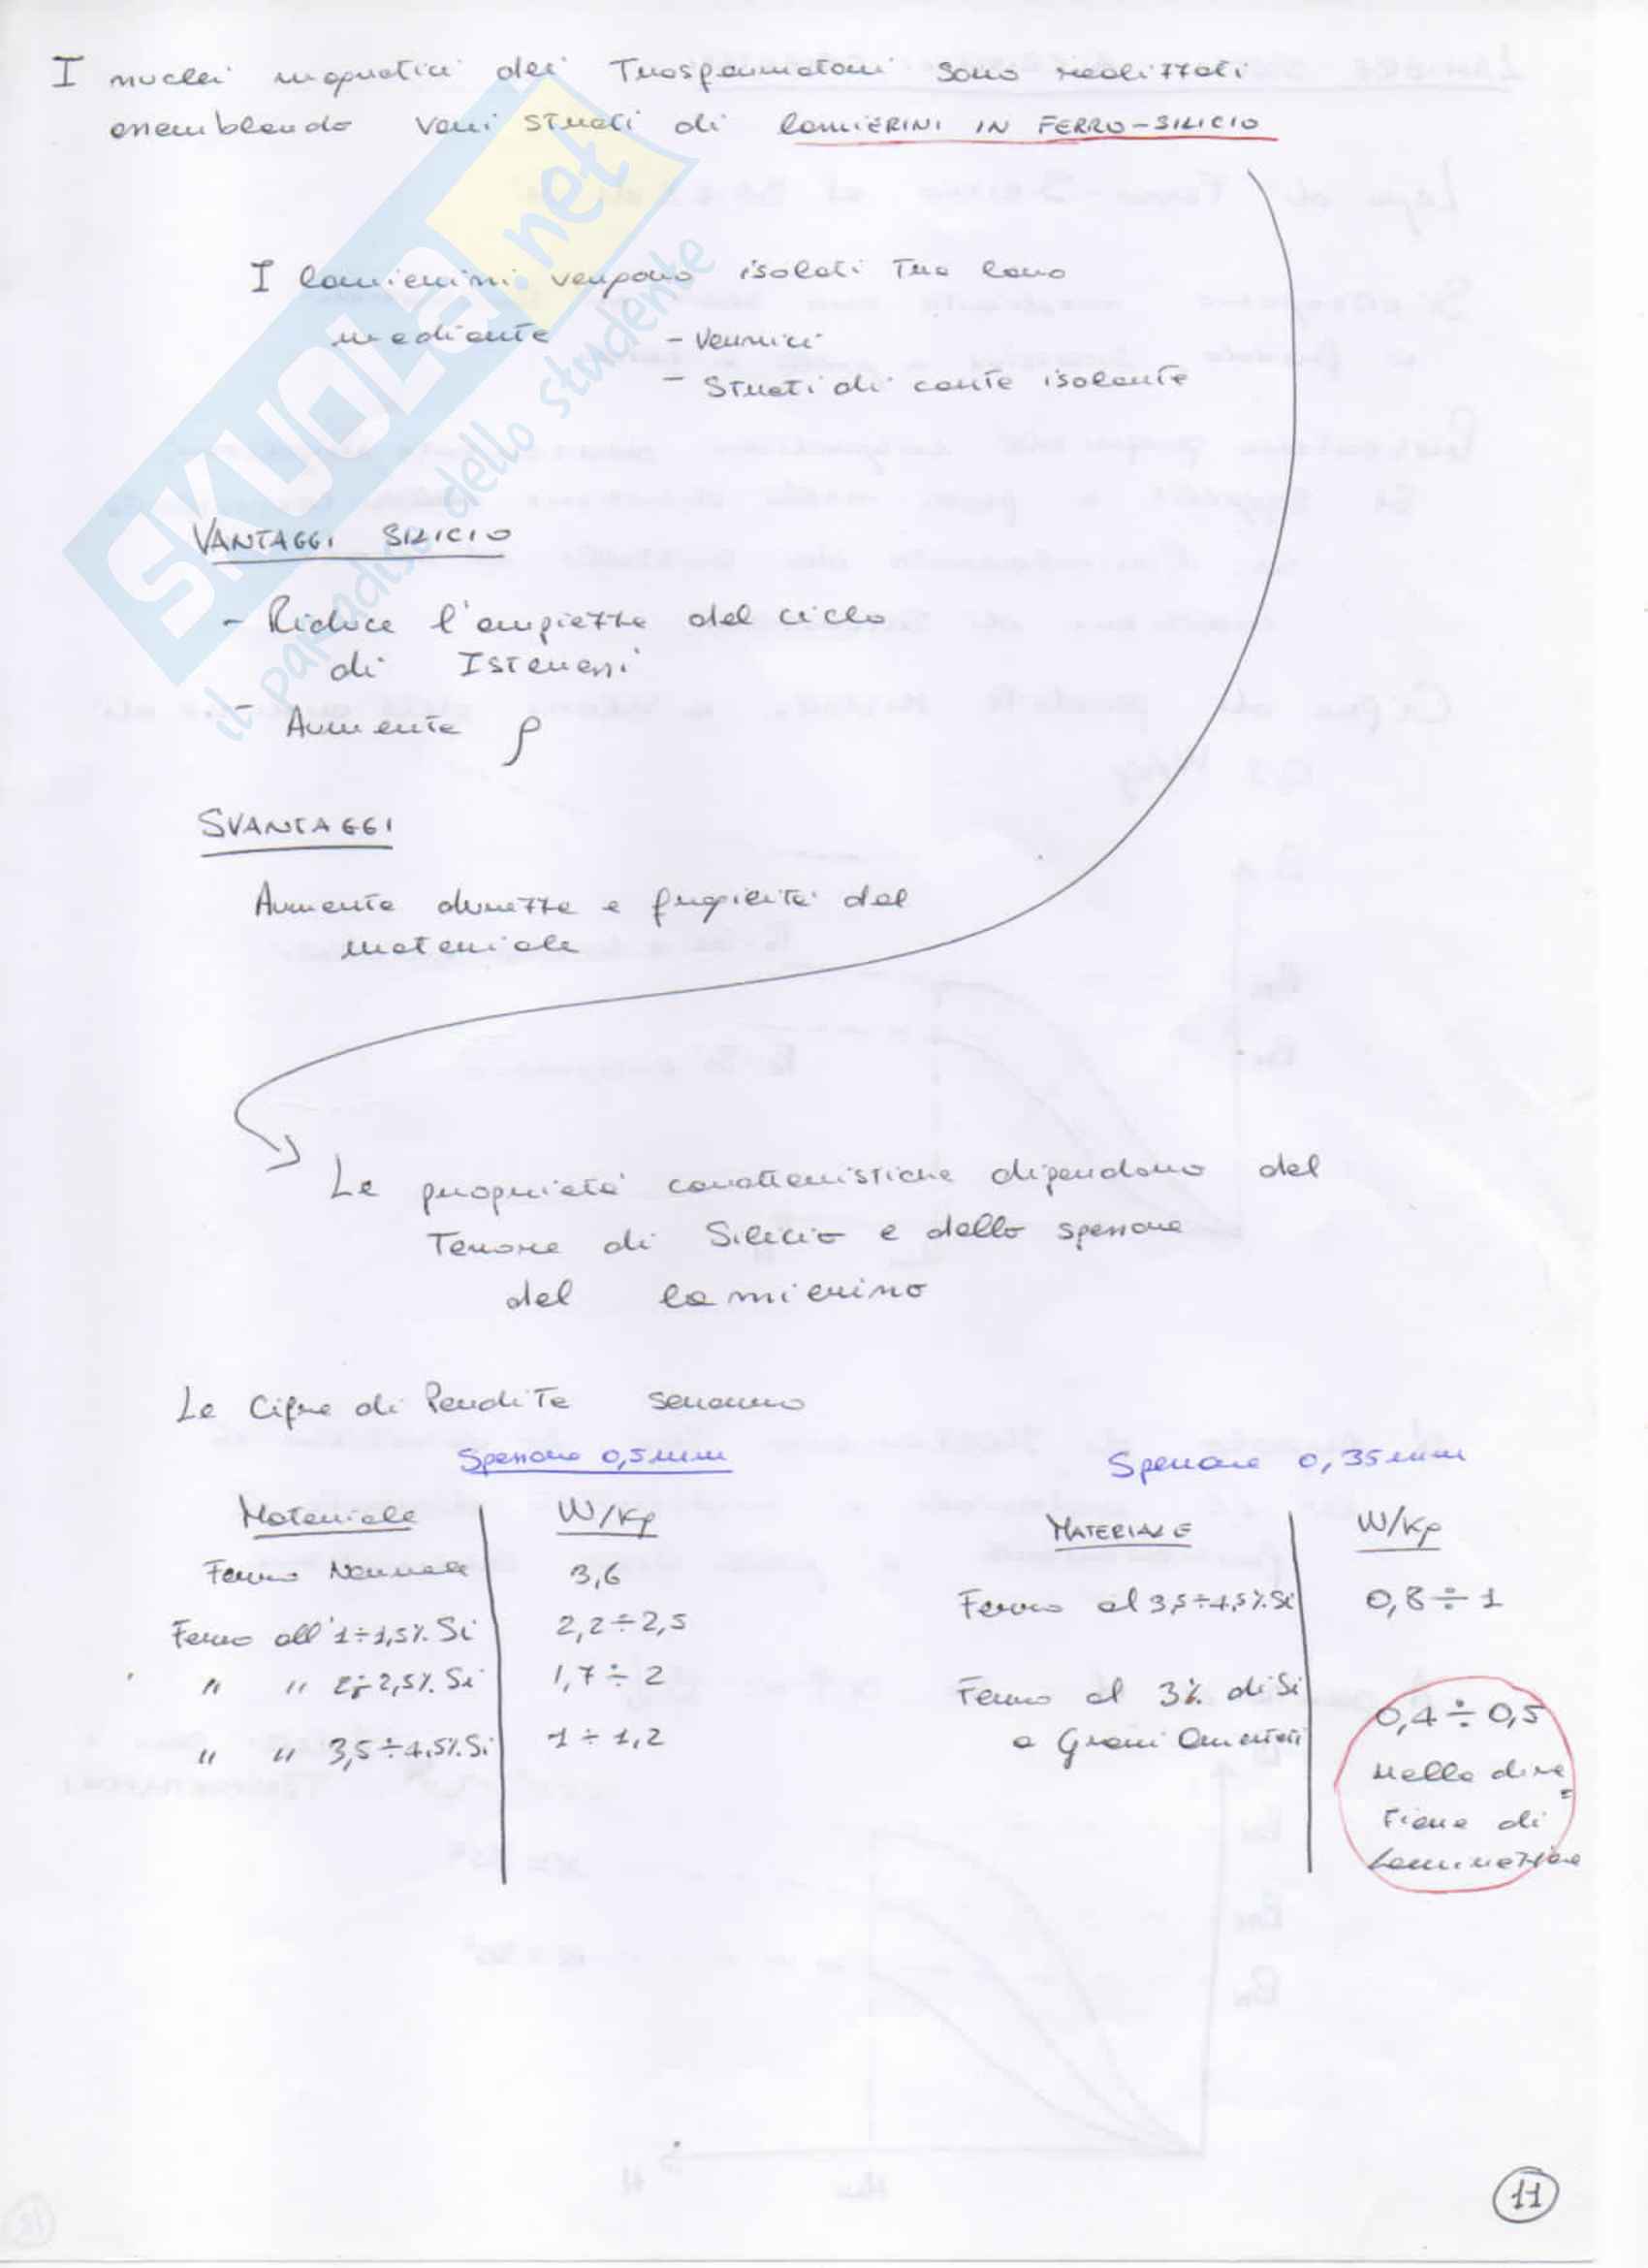 I nuclei magnetici dei Trasformatori sono realizzati
assemblando vari strati di lamierini in ferro-silicio
I lamierini vengono isolati tra loro
mediante - Vernici
- Strati di carta isolante
SKUOLA.net
il paradiso dello studente
VANTAGGI SILICIO
- Riduce l'ampiezza del ciclo
di Isteresi
- Aumenta ρ
SVANTAGGI
Aumenta durezza e fragilità del
materiale
Le proprietà caratteristiche dipendono dal
Tenore di Silicio e dallo spessore
del lamierino
Le Cifre di Perdita saranno
Spessore 0,5 mm
Materiale W/kg
Ferro Normale 3,6
Ferro all'1÷1,5% Si 2,2÷2,5
" " 2÷2,5% Si 1,7÷2
" " 3,5÷4,5% Si 1÷1,2
Spessore 0,35 mm
MATERIALE W/kg
Ferro al 3,5÷4,5% Si 0,8÷1
Ferro al 3% di Si 0,4÷0,5
a Grani Orientati nella dire=
zione di
laminazione
11